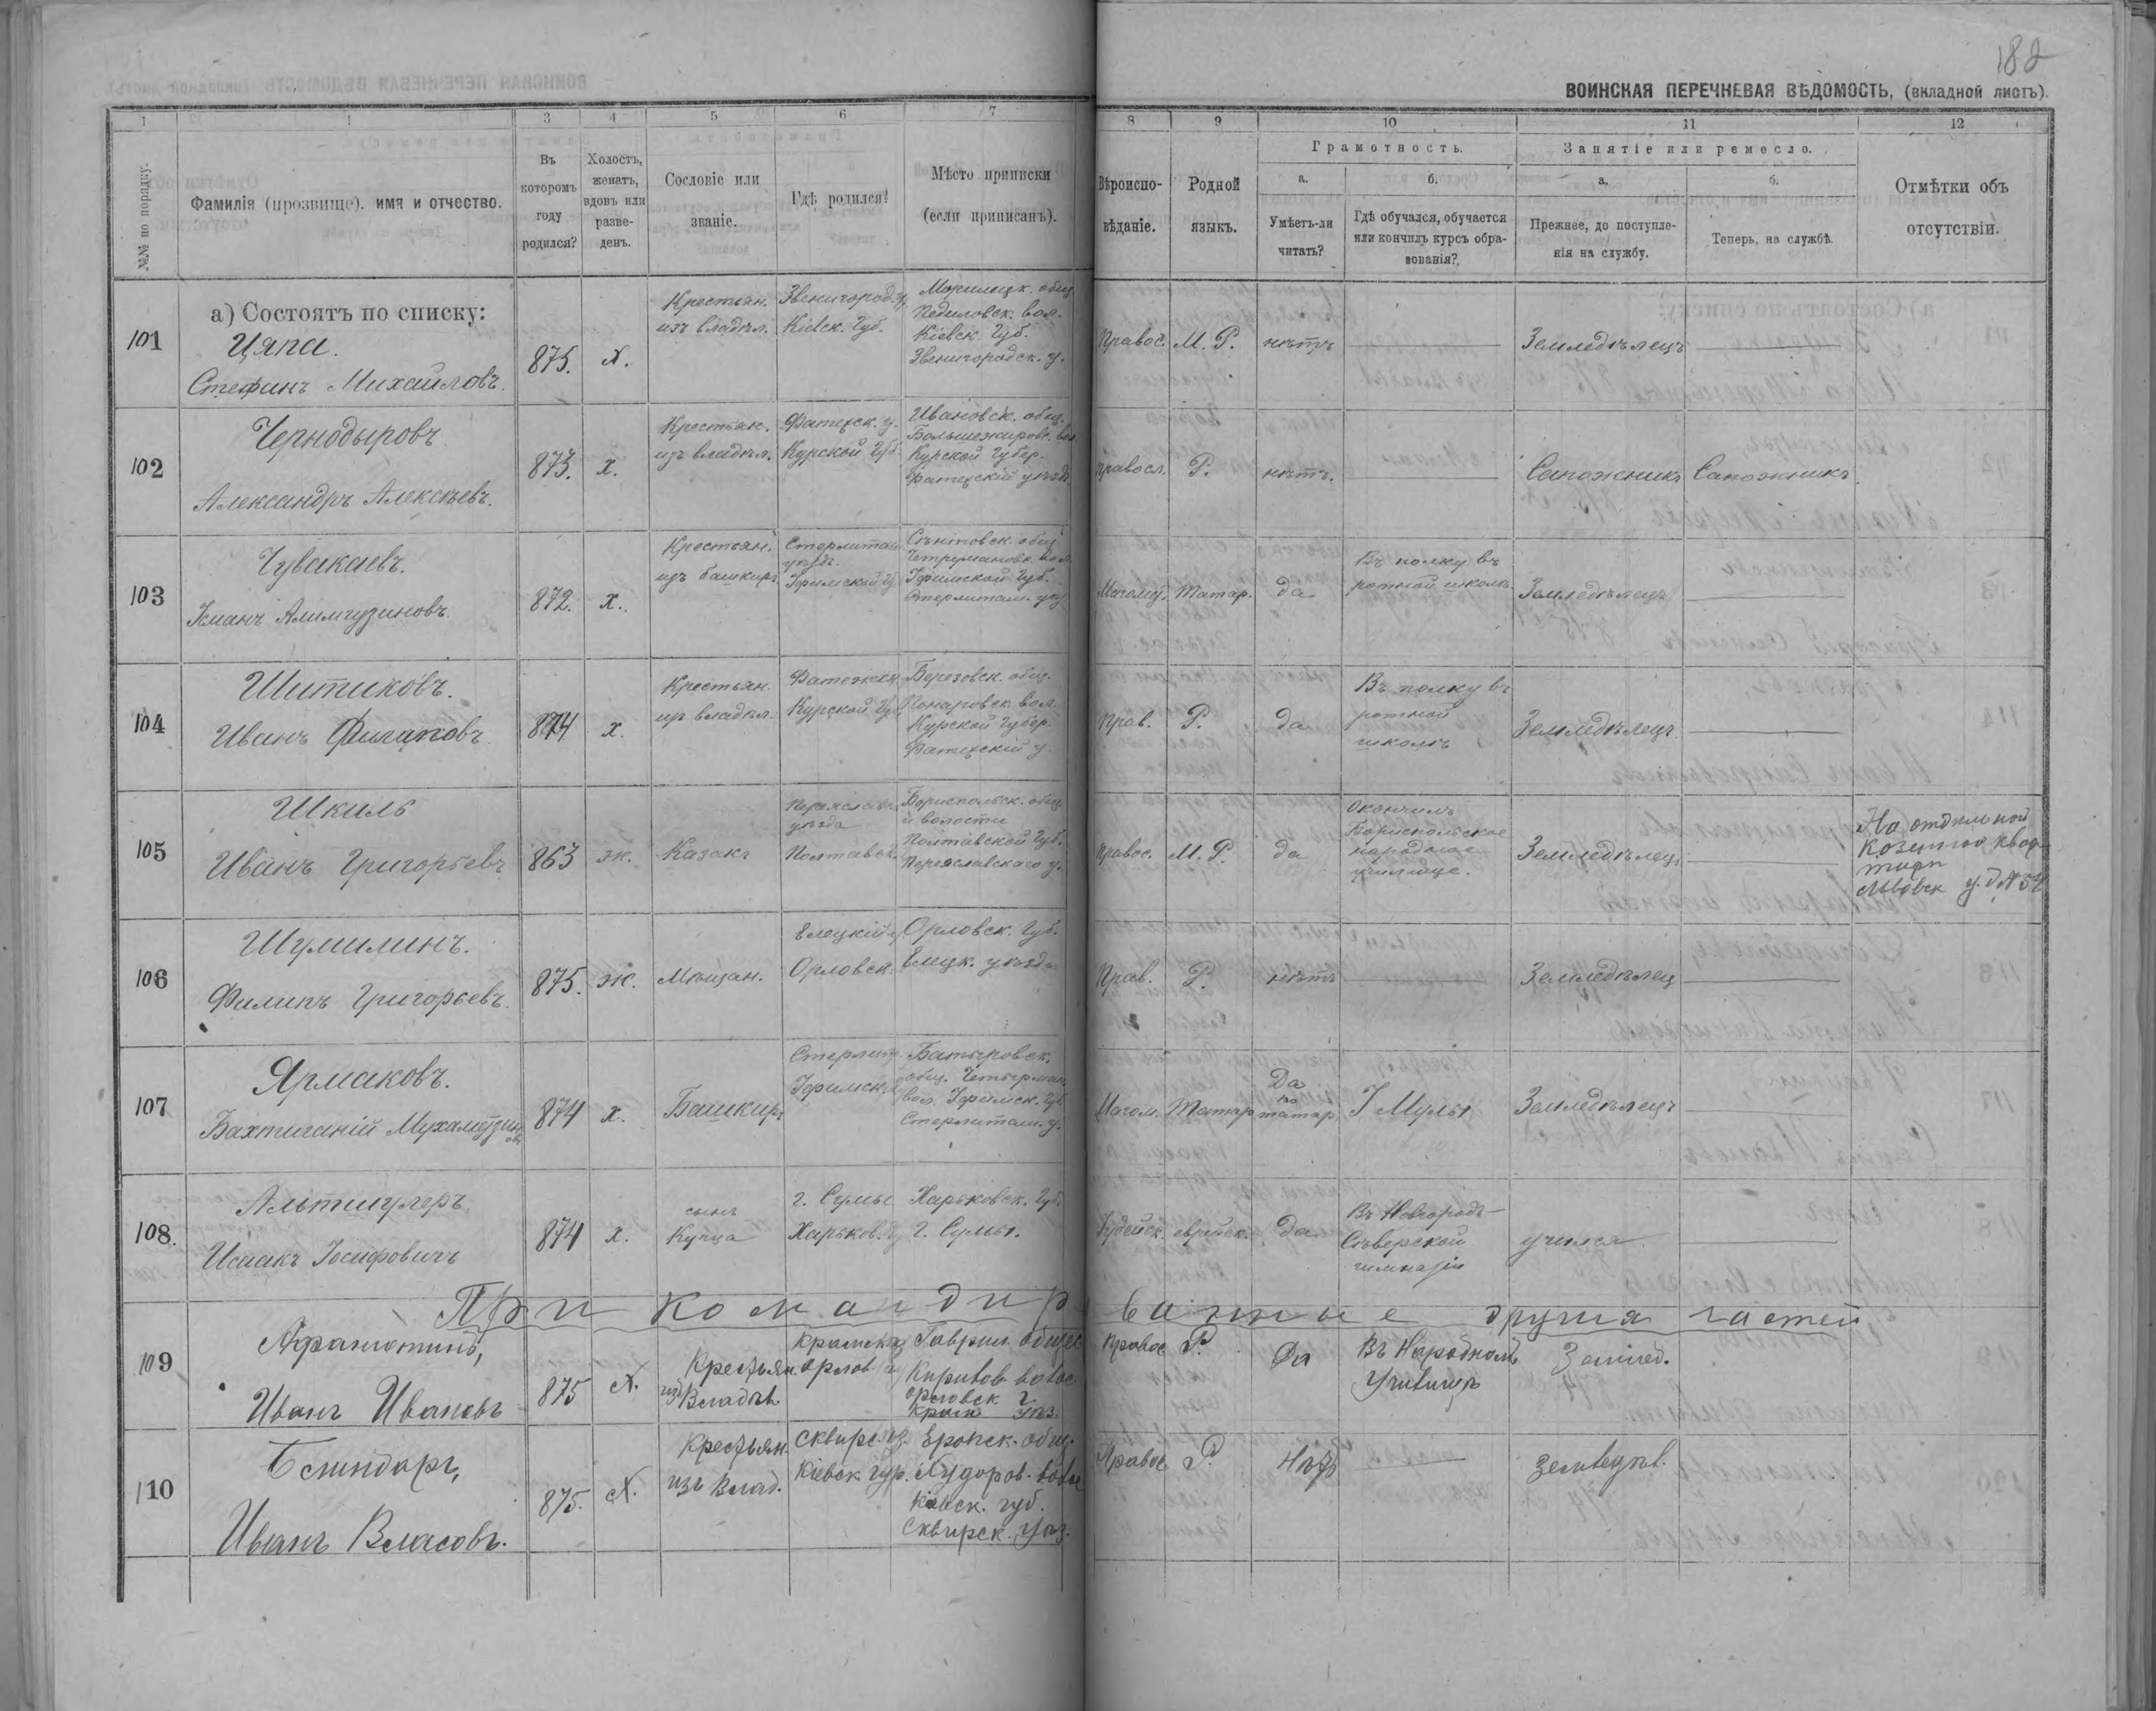 182
ВОИНСКАЯ ПЕРЕЧНЕВАЯ ВѢДОМОСТЬ, (вкладной листъ).
1 1 3 4 5 6 7 8 9 10 11 12
№№ по порядку.
Фамилія (прозвище), имя и отчество.
Въ которомъ году родился?
Холостъ, женатъ, вдовъ или разве-денъ.
Сословіе или званіе.
Гдѣ родился?
Мѣсто приписки (если приписанъ).
Вѣроиспо-вѣданіе.
Родной языкъ.
Грамотность.
а. Умѣетъ-ли читать?
б. Гдѣ обучался, обучается или кончилъ курсъ обра-зованія?
Занятіе или ремесло.
а. Прежнее, до поступле-нія на службу.
б. Теперь, на службѣ.
Отмѣтки объ отсутствіи.
а) Состоятъ по списку:
101 Цяпа. Стефанъ Михайловъ. 875. х. Крестьян. изъ владѣл. Звенигород. у. Кіевск. Губ. Моринцк. общ. Кіевск. Губ. Звенигородск. у. Правос. М. Р. нѣтъ Земледѣлецъ
102 Чернодыровъ Александръ Алексѣевъ. 873. х. Крестьян. изъ владѣл. Фатежск. у. Курской Губ. Ивановск. общ. Большежировс. вол. Курской Губер. Фатежскій уѣздъ Правосл. Р. нѣтъ. Сапожникъ Сапожникъ
103 Чувакаевъ. 872. х. Крестьян. изъ башкиръ Стерлитам. уѣзд. Уфимской Г. Уфимской Губ. Стерлитам. уѣз. Магомед. Татар. да Въ полку въ ротной школѣ Земледѣлецъ
104 Шитиковъ. Иванъ 874 х. Крестьян. изъ владѣл. Фатежск. Курской Губ. Березовск. общ. вол. Курской Губер. Фатежскій у. Прав. Р. да Въ полку въ ротной школѣ Земледѣлецъ
105 Шкиль Иванъ Григорьевъ 863 ж. Казакъ Переяславск. уѣзда Полтавск. Бориспольск. общ. и волости Полтавской Губ. Переяславскаго у. Правос. М. Р. да Окончилъ Бориспольское народное училище. Земледѣлецъ На отдѣльной казенной квар-тирѣ Львовск у. д № 54
106 Шумилинъ. Филипъ Григорьевъ. 875. ж. Мѣщан. Елецкій у. Орловск. Орловск. Губ. Елецк. уѣзда Прав. Р. нѣтъ Земледѣлец
107 Ярмаковъ. 874 х. Башкиръ Стерлит. Уфимск. Батыровск. общ. Четырман. вол. Уфимск. Губ. Стерлитам. у. Магом. Татар Да по татар. У Мулы Земледѣлецъ
108. Альтшулеръ Исаакъ Іосифовичъ 874 х. сынъ Купца г. Сумы Харьков. Г. Харьковск. Губ. г. Сумы. Іудейск. еврейск. Да Въ Новгородъ-Сѣверской гимназіи учился
Прикомандированные другия частей
109 Иванъ Ивановъ 875 х. Крестьян. изъ Владѣл. Орлов. Орловск г. Правос Р. Да Въ Народномъ Училищѣ Земле.
110 Иванъ Власовъ. 875. х. Крестьян. изъ Влад. Сквирс. уз. Кіевск. гур. Кіевск. губ. Сквирск. Уѣз. Правос Р. Нѣтъ